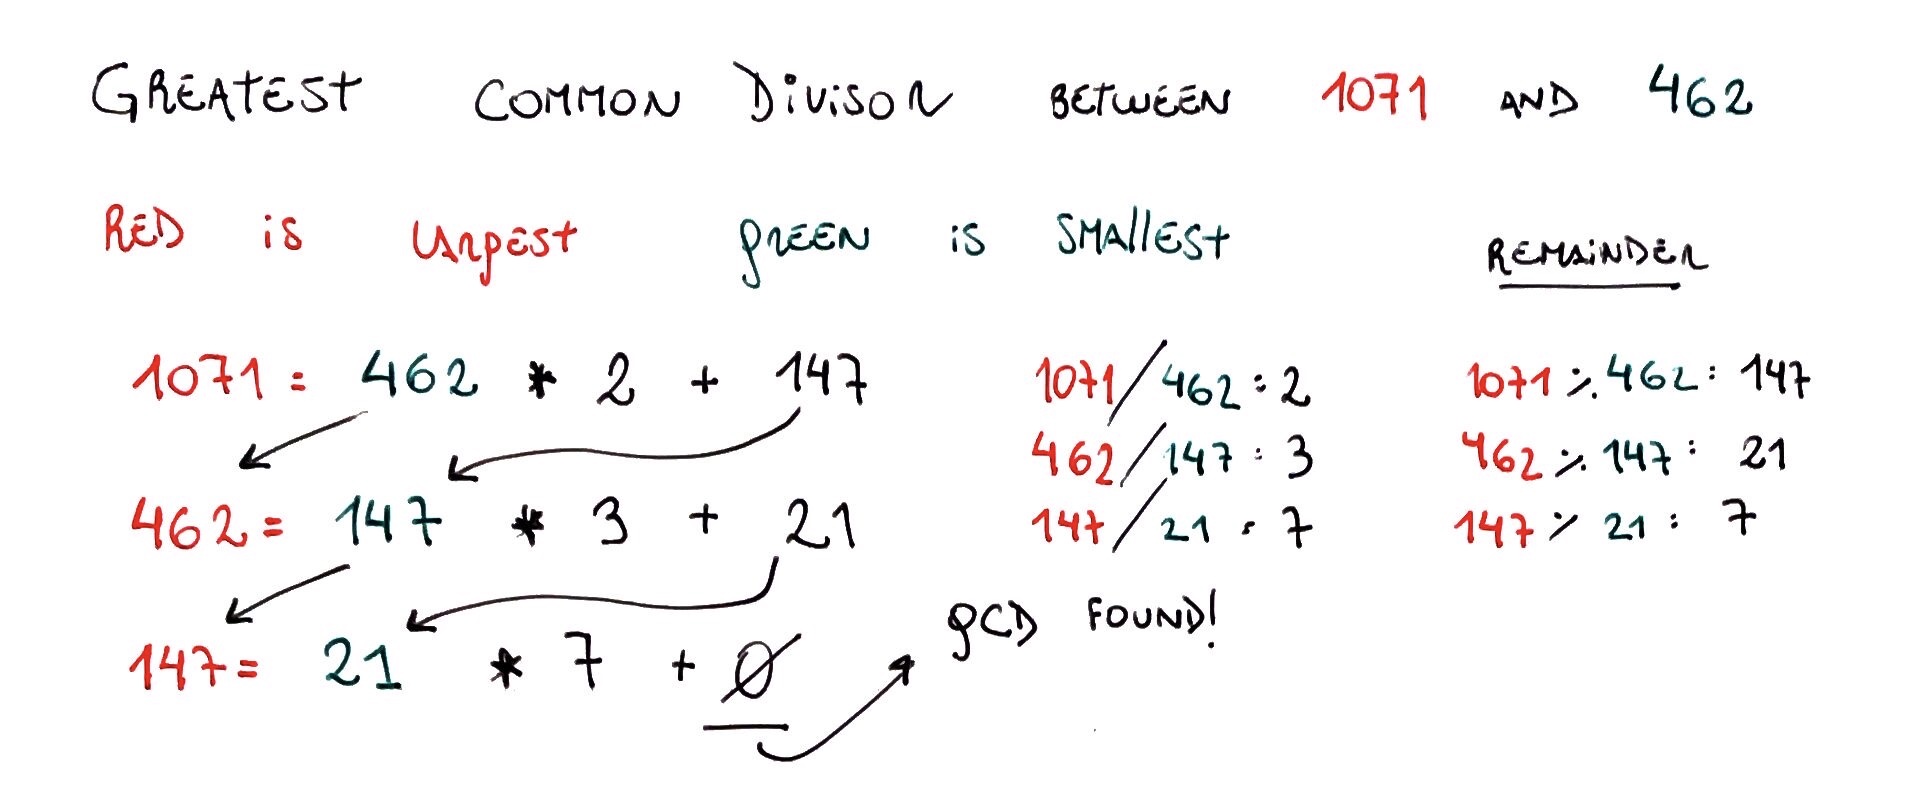 GREATEST COMMON DIVISOR BETWEEN 1071 AND 462
RED is LARGEST GREEN is SMALLEST
REMAINDER
1071 = 462 * 2 + 147
1071 / 462 = 2
1071 % 462 = 147
462 / 147 = 3
462 % 147 = 21
462 = 147 * 3 + 21
147 / 21 = 7
147 % 21 = 7
GCD FOUND!
147 = 21 * 7 + 0